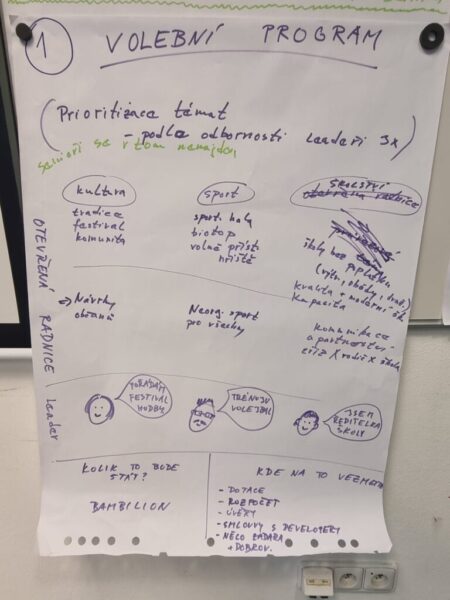 1 VOLEBNÍ PROGRAM
(Prioritizace témat
- podle odbornosti Leadeři 3x)
senioři se v tom nenajdou
kultura
tradice
festival
komunita
sport
sport. haly
biotop
volně příst.
hřiště
ŠKOLSTVÍ
otevřená radnice
školy bez poplatku
(výtv., obědy, druž.)
kvalita + moderní
kapacita
OTEVŘENÍ RADNICE Leader
→ Návrhy
občanů
Neorg. sport
pro všechny
komunikace
a partnerství
rodič X škola
POŘÁDÁM
FESTIVAL
HUDBY
TRÉNUJU
VOLEJBAL
JSEM
ŘEDITELKA
ŠKOLY
KOLIK TO BUDE
STÁT?
BAMBILION
KDE NA TO VEZMEME
- DOTACE
- ROZPOČET
- ÚVĚRY
- SMLOUVY S DEVELOPERY
- NĚCO ZADARA
+ DOBROV.